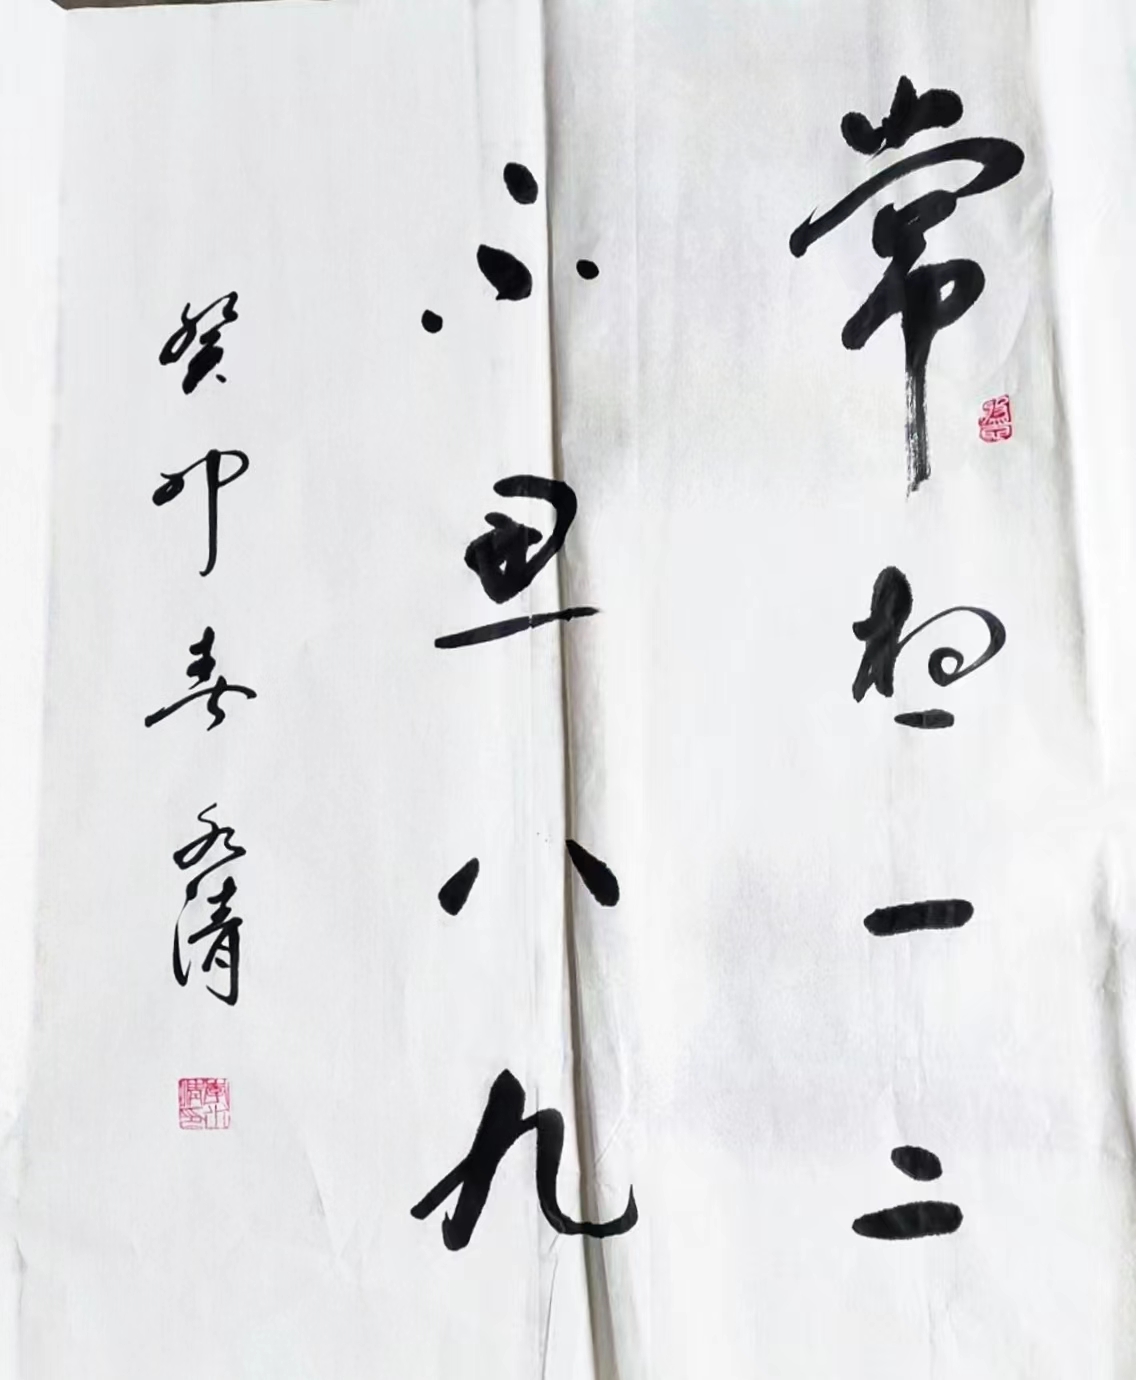 常想一二
不思八九
癸卯春 清